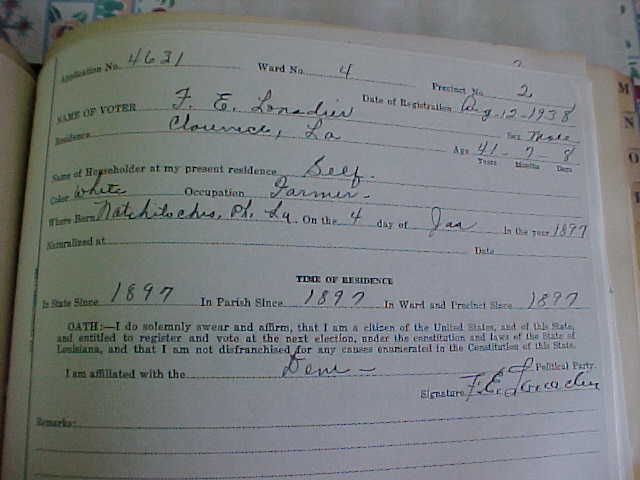 Application No. 4631 Ward No. 4 Precinct No. 2
NAME OF VOTER F. E. Lonadier Date of Registration Aug. 12-1938
Residence Clarence, La Sex Male
Age 41 - 7 - 8
Years Months Days
Name of Householder at my present residence Self.
Color White Occupation Farmer -
Where Born Natchitoches, Ph. La. On the 4 day of Jan In the year 1897
Naturalized at Date
TIME OF RESIDENCE
In State Since 1897 In Parish Since 1897 In Ward and Precinct Since 1897
OATH:—I do solemnly swear and affirm, that I am a citizen of the United States, and of this State,
and entitled to register and vote at the next election, under the constitution and laws of the State of
Louisiana, and that I am not disfranchised for any causes enumerated in the Constitution of this State.
I am affiliated with the Dem - Political Party.
Signature F. E. Lonadier
Remarks:
M
N
O